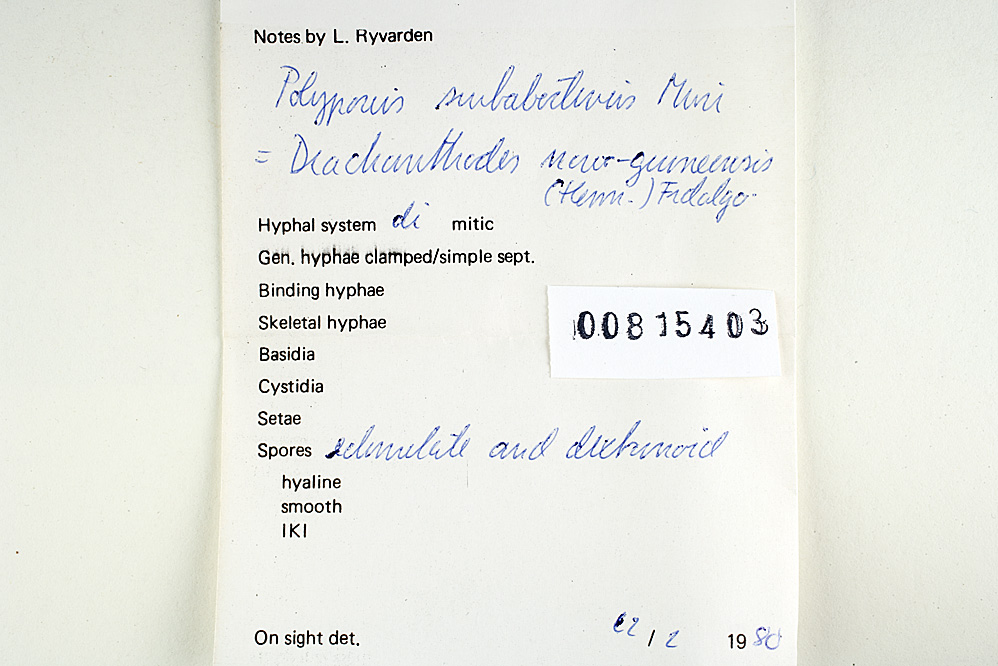 Notes by L. Ryvarden
Polyporus subabortivus Murr
= Diacanthodes novo-guineensis
(Henn.) Fidalgo
Hyphal system di mitic
Gen. hyphae clamped/simple sept.
Binding hyphae
00815403
Skeletal hyphae
Basidia
Cystidia
Setae
Spores echinulate and dextrinoid
hyaline
smooth
IKI
On sight det. / 2 19 80